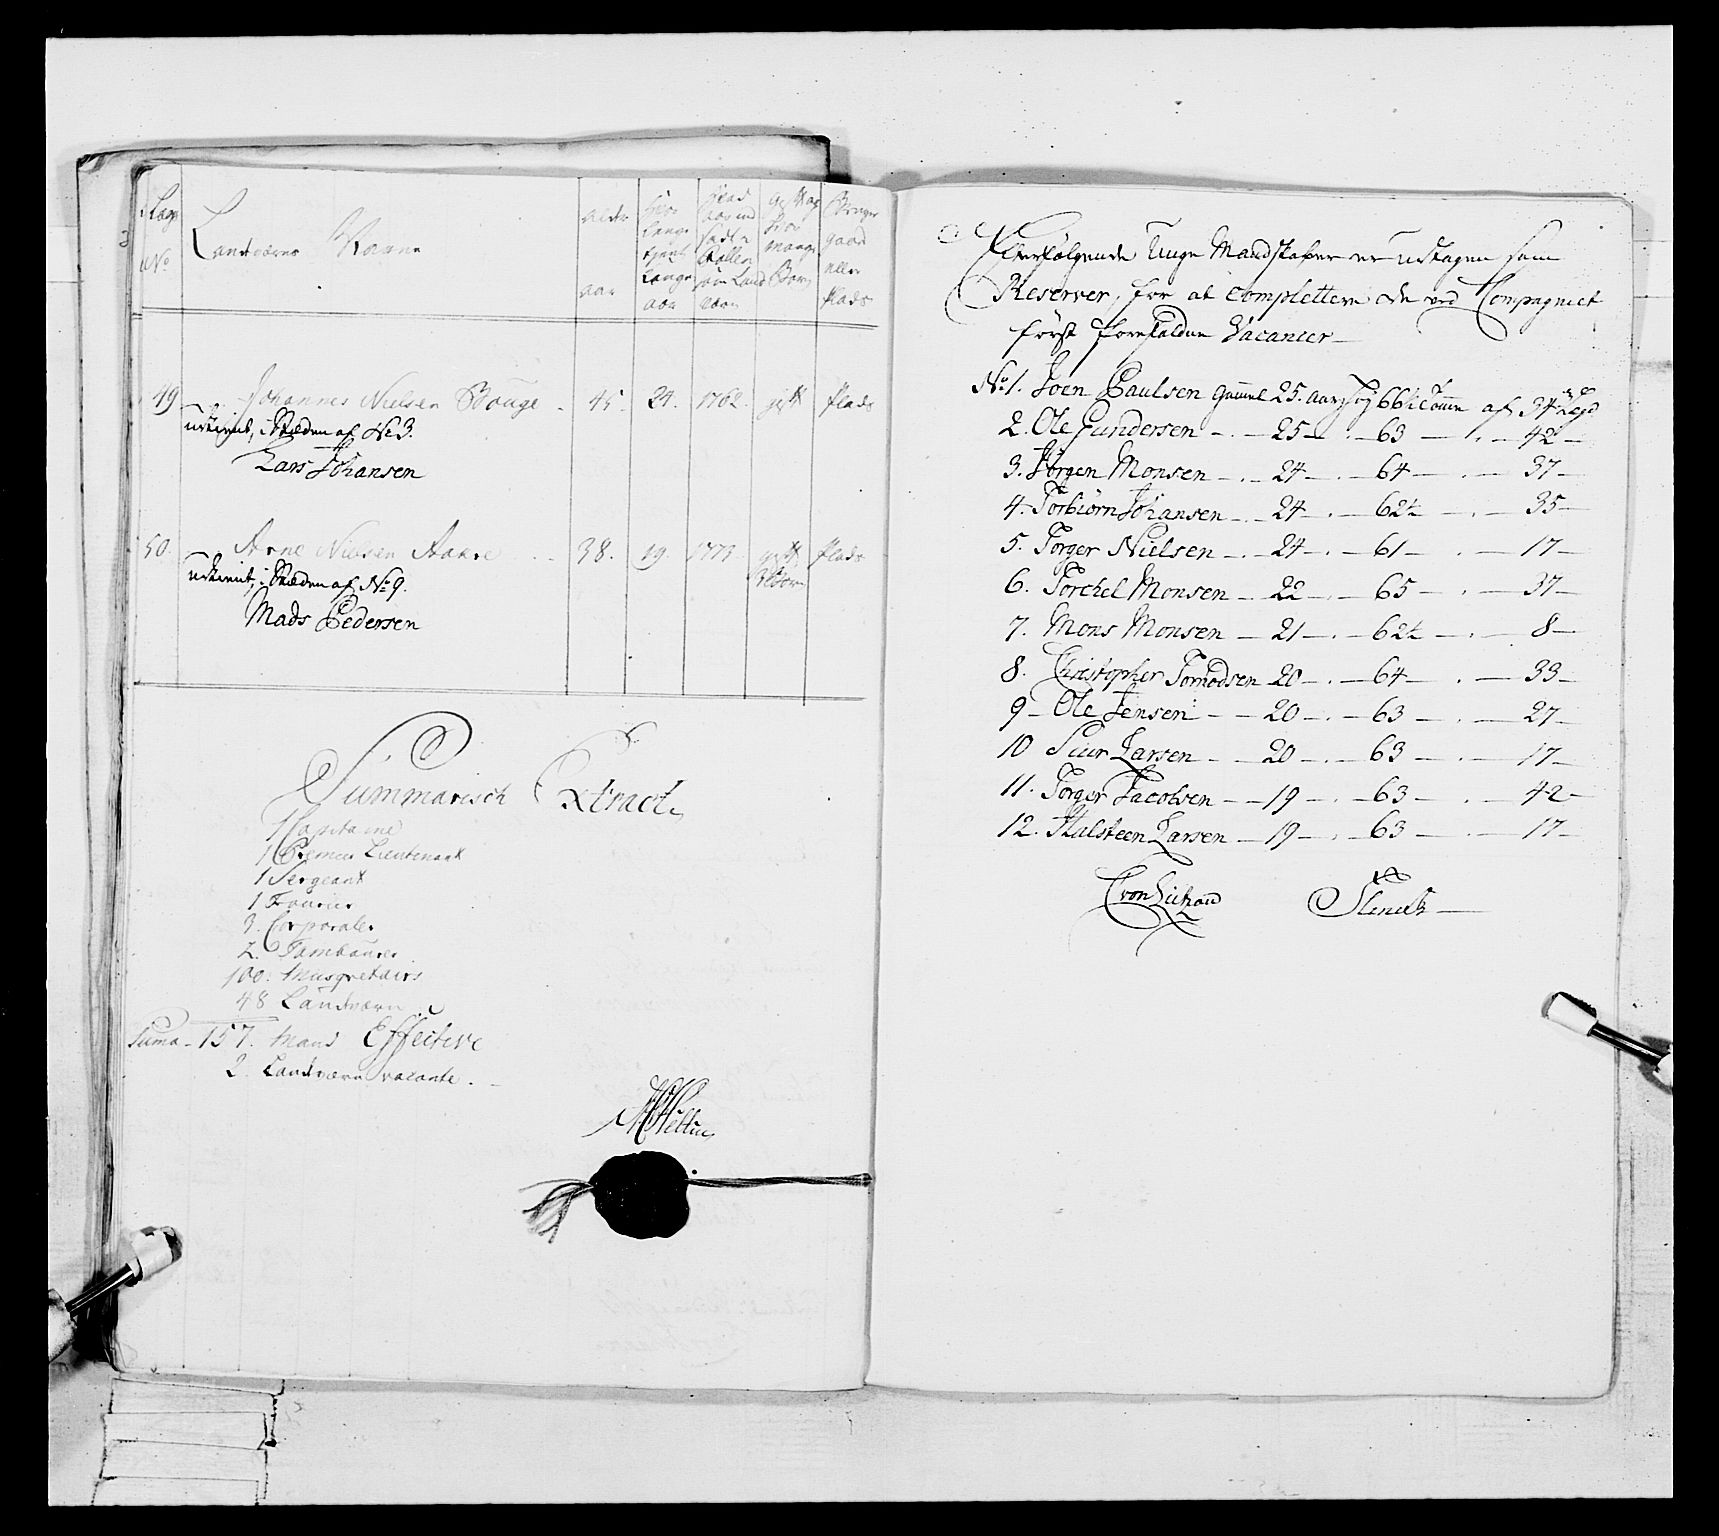 Lægs
No
Landværns Navne
alder
aar
hvor
Længe
tjent
Lange
aar
hvad
aar ind
sadt i
Rollen
som Land
værn
gift og
hvor
mange
Børn
Bruger
gaard
eller
Plads
49 Johannes Nielsen Bouge 45. 24. 1762. gift Plads
udtient, i Stæden af No 3.
Lars Johansen
50. Arne Nielsen Aakre 38. 19. 1771. gift Plads
udtient, i Stæden af No 9.
Mads Pedersen
Summarisch Extract
1 Capitaine
1 Premier Lieutenant
1 Sergeant
1 Fourier
3. Corporaler
2. Tambourer
100. Musqvetairs
48 Landværn
Suma - 157. Mand Effective
2. Landværn vacante.
Efterfølgende Unge Mandskaber er udtagen som
Reserver, for at complettere de ved Compagniet
først forefaldne Vacancer
No 1. Joen Paulsen gammel 25. aar høy 66½ Tomme af 34 Lægd
2. Ole Gundersen - 25 - 63 - 42
3. Jørgen Monsen - 24 - 64 - 37
4. Torbiørn Johansen - 24 - 62½ - 35
5. Torger Nielsen - 24 - 61 - 17
6. Torchel Monsen - 22 - 65 - 37
7. Mons Monsen - 21 - 62½ - 8
8. Christopher Tormodsen 20 - 64 - 33
9 - Ole Jensen - 20 - 63 - 27
10 Siur Larsen - 20 - 63 - 17
11. Torger Jacobsen - 19 - 63 - 42
12. Halsteen Larsen - 19 - 63 - 17